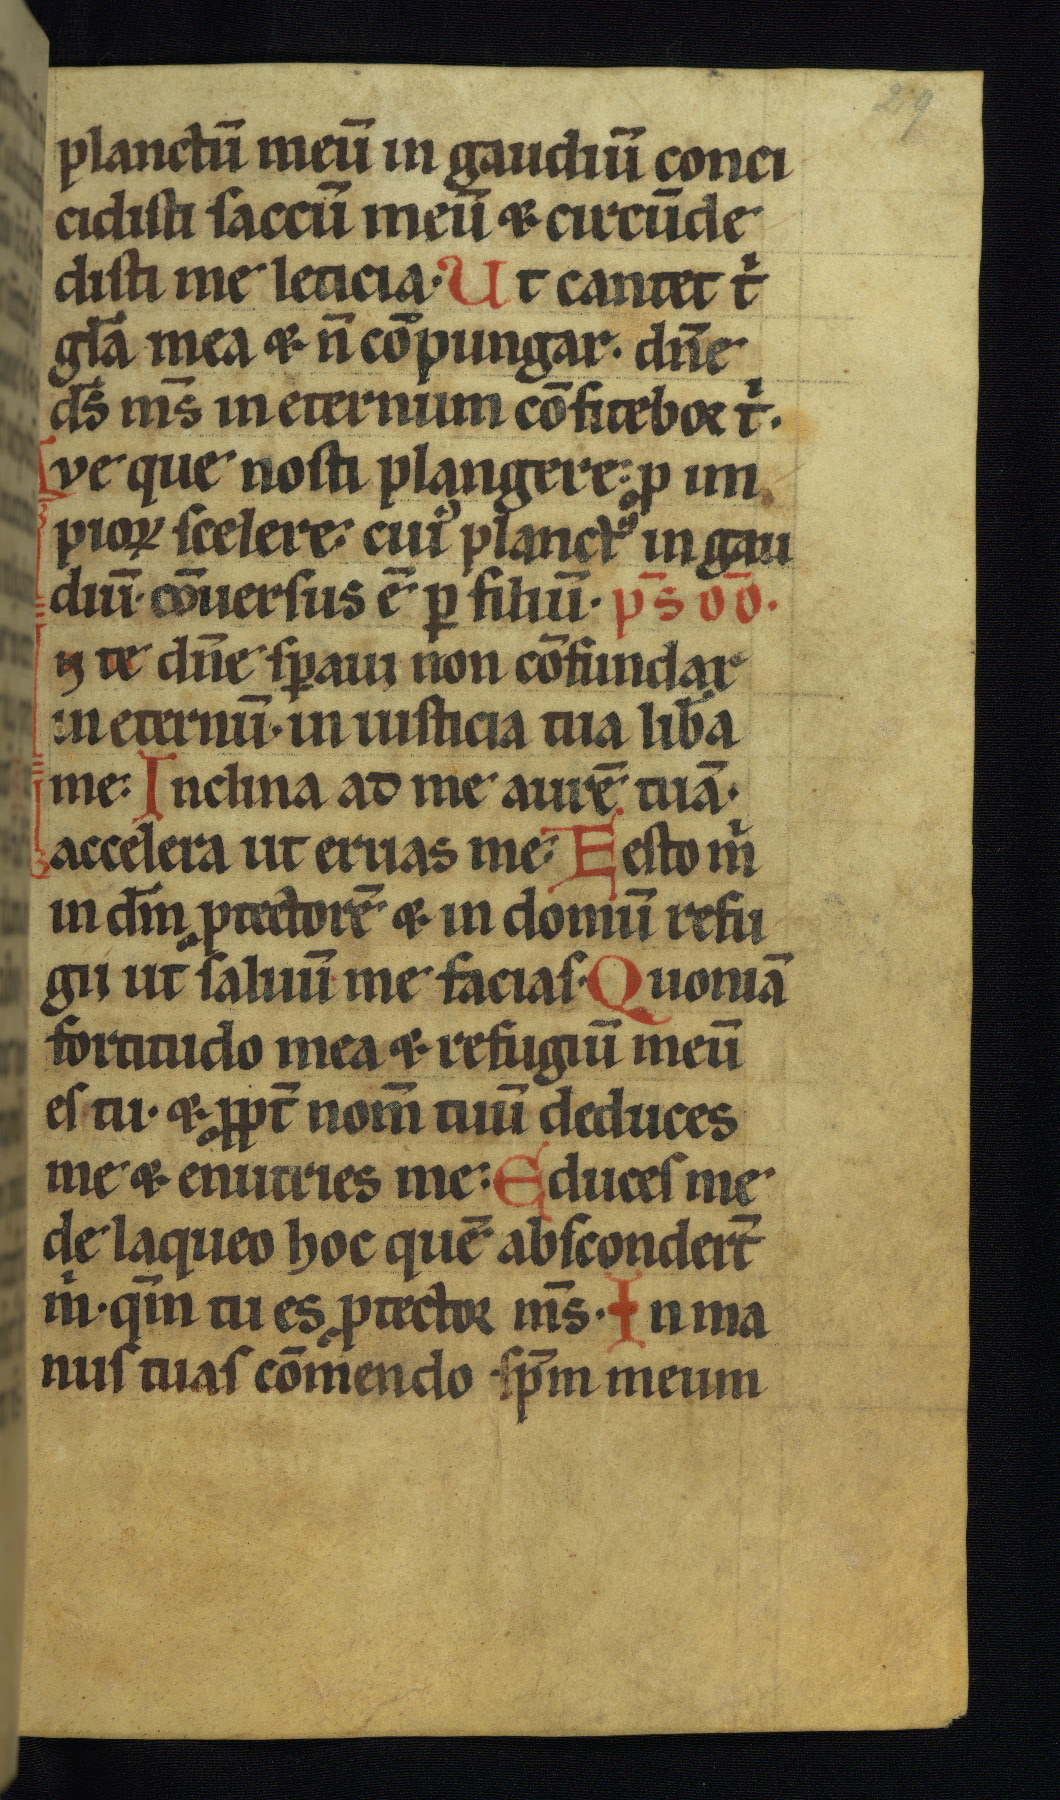 29
planctū meū in gaudiū conci
cidisti saccū meū ⁊ circūde
disti me leticia. Ut cantet t̍
gl̄a mea ⁊ n̄ cōpungar. dn̄e
ds̄ ms̄ in eternum cōfitebor t̍.
ve que nosti plangere: p im
pioꝝ scelere: cuiꝰ planctꝰ in gau
diū. cōuersus ē ꝑ filiū. ps̄ dd̄.
N te dn̄e sꝑaui non cōfundar
in eternū. in iusticia tua lib̄a
me: Inclina ad me aurē tuā.
accelera ut eruas me: Eesto m̍
in dm̄ ꝓtectorē ⁊ in domū refu
gii ut saluū me facias. Quoniā
fortitudo mea ⁊ refugiū meū
es tu. ⁊ ꝓpt̄ nom̄ tuū deduces
me ⁊ enutries me: Educes me
de laqueo hoc quē absconder̄t
m̍. qm̄ tu es ꝓtector ms̄. In ma
nus tuas cōmendo sp̄m meum